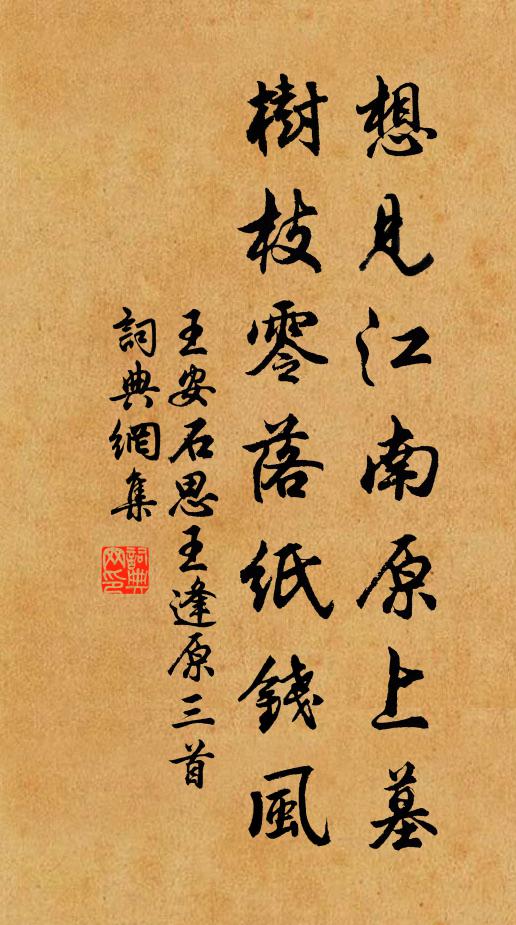 想見江南原上墓
樹枝零落紙錢風
王安石思王逢原三首
詞典網集
詞典網印